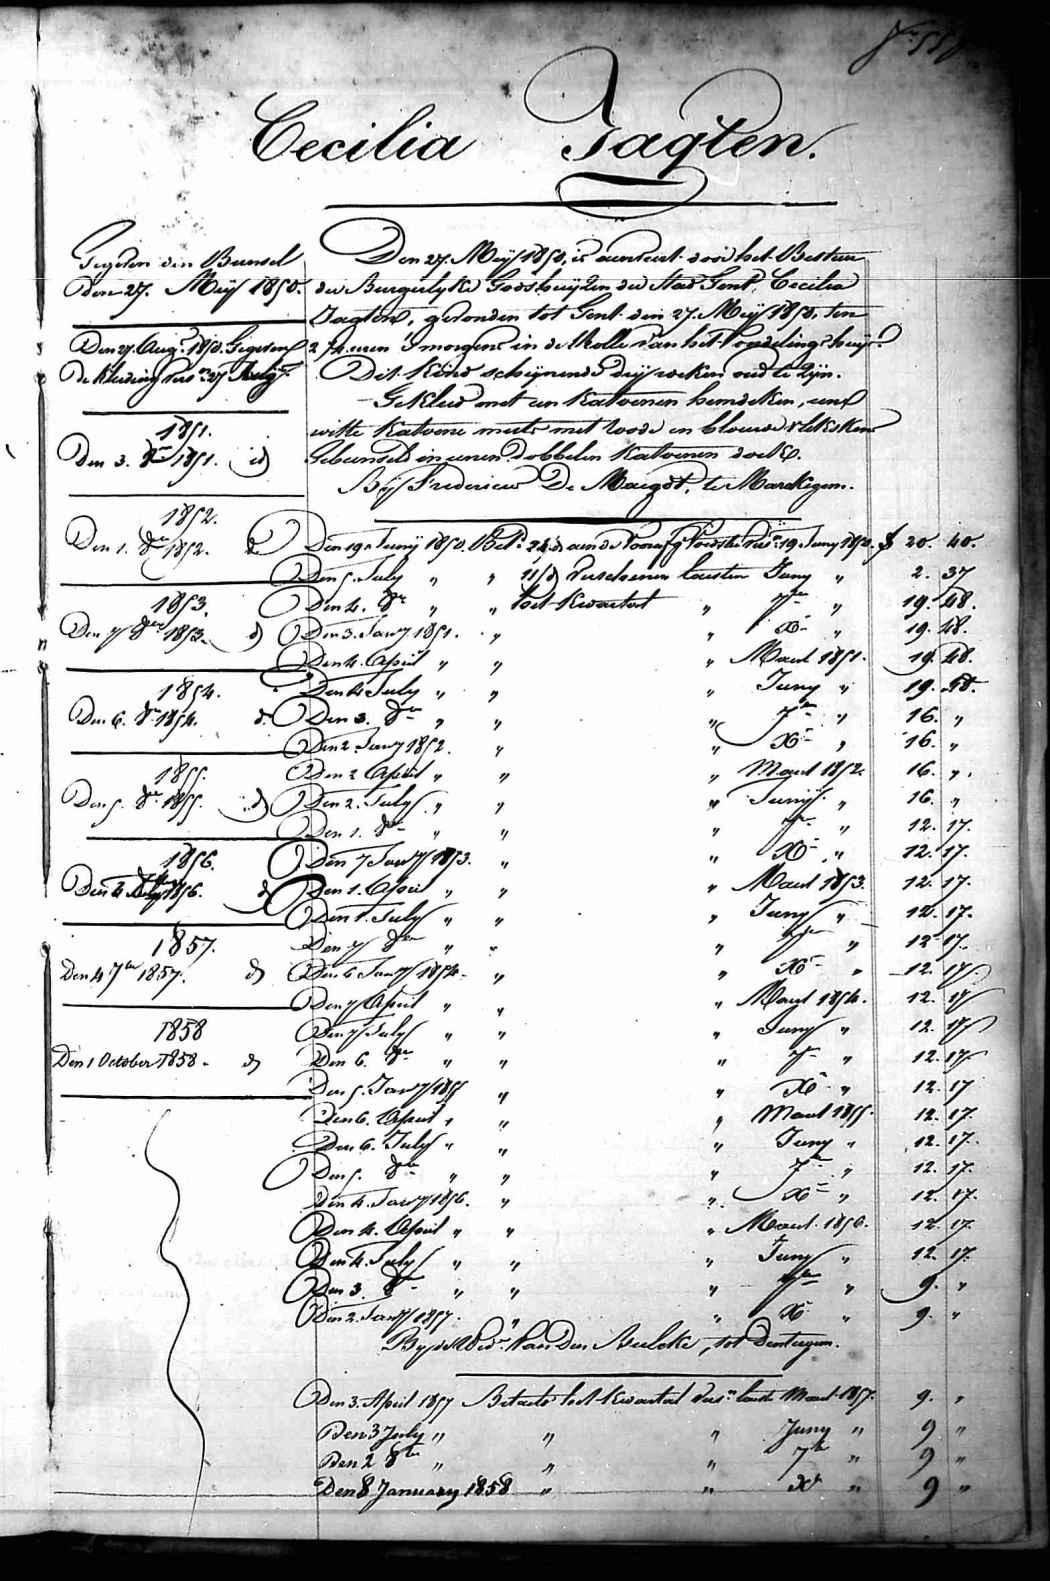 Cecilia Jagten.
Gegeven den Bunsel
den 27. Meÿ 1850.
Den 27. Augt. 1850. Gegeven
de kleeding vers. 27 July
1851.
Den 3. 8bre 1851. id
1852.
Den 1. 8bre 1852. id
1853.
Den 7 8bre 1853. id
1854.
Den 6. 8bre 1854. id
1855.
Den 5. 8bre 1855. id
1856.
Den 4 1856. id
1857.
Den 4 7bre 1857. id
1858
Den 1 October 1858. id
Den 27. Meÿ 1850, is aenveert door het Bestuur
der Burgerlyke Godshuyzen der Stad Gent, Cecilia
Jagten, gevonden tot Gent den 27. Meÿ 1850, ten
2 ½ uren 's morgens in de Rolle van het Vondelingshuys.
Dit Kind schynende dry weken oud te zyn.
Gekleed met een katoenen hemdeken, eene
witte katoene muts met roode en blauwe vlekskens
Gebunseld in eenen dobbelen katoenen doek.
By Frederieu De Maegdt, te Marckegem.
Den 19 Juny 1850. Bet. aen de Voorsg. Voedster vers. 19 Juny 1850. f 20. 40.
Den 5 July " " 11/d verschenen laesten Juny " 2. 37
Den 4. 8bre " " tot kwartaet " 7bre " 19. 48.
Den 3. Janry 1851. " " Xbre " 19. 48.
Den 4. April " " " Maert 1851. 19. 48.
Den 4 July " " " Juny " 19. 48.
Den 3. 8bre " " " 7bre " 16. "
Den 2. Janry 1852. " " Xbre " 16. "
Den 2 April " " " Maert 1852. 16. "
Den 2. July " " " Juny " 16. "
Den 1. 8bre " " " 7bre " 12. 17.
Den 7 Janry 1853. " " Xbre " 12. 17.
Den 1. April " " " Maert 1853. 12. 17.
Den 1. July " " " Juny " 12. 17.
Den 7 8bre " " " 7bre " 12. 17.
Den 6 Janry 1854. " " Xbre " 12. 17.
Den 7 April " " " Maert 1854. 12. 17
Den 7 July " " " Juny " 12. 17
Den 6. 8bre " " " 7bre " 12. 17.
Den 5. Janry 1855 " " Xbre " 12. 17
Den 6. April " " " Maert 1855. 12. 17.
Den 6. July " " " Juny " 12. 17.
Den 5. 8bre " " " 7bre " 12. 17.
Den 4. Janry 1856. " " Xbre " 12. 17.
Den 4. April " " " Maert 1856. 12. 17.
Den 4. July " " " Juny " 12. 17.
Den 3. 8bre " " " 7bre " 9. "
Den 2. Janry 1857. " " Xbre " 9. "
By de Wedwe. Van Den Bulcke, tot Dentergem.
Den 3. April 1857 Betaelt het kwartael vers. laeste Maert 1857. 9. "
Den 3 July " " " Juny " 9 "
Den 2 8bre " " " 7bre " 9 "
Den 8 January 1858 " " Xbre " 9 "